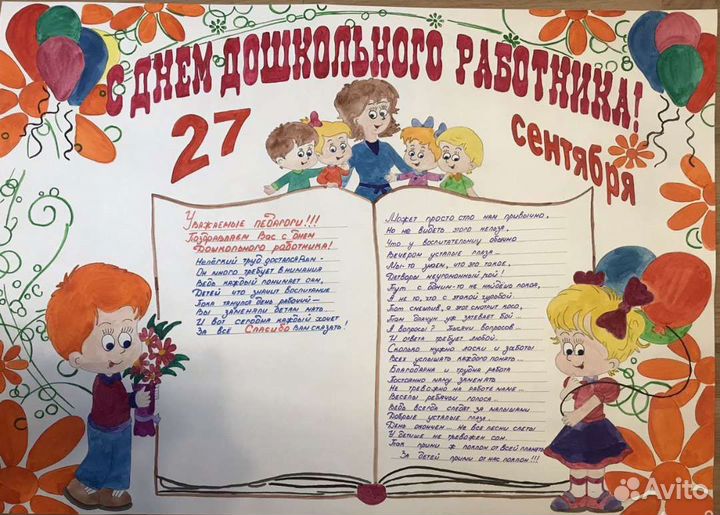 С ДНЕМ ДОШКОЛЬНОГО РАБОТНИКА!
27
сентября
Уважаемые педагоги!!!
Поздравляем Вас с днем
Дошкольного работника!
Нелёгкий труд достался Вам -
Он много требует внимания
Ведь каждый понимает сам,
Детей что значит воспитание.
Пока тянулся день рабочий -
Вы заменяли детям мать...
И вот сегодня каждый хочет
За все Спасибо Вам сказать!
Может просто это нам привычно,
Но не видеть этого нельзя,
Что у воспитательниц обычно
Вечером усталые глаза...
Мы-то знаем, что это такое,
Детворы неугомонный рой!
Тут с одним-то не найдёшь покоя,
А не то, что с этакой гурьбой.
Тот смешлив, а этот смотрит косо,
Там драчун уж затевает бой...
А вопросы? Тысячи вопросов...
И ответа требует любой.
Сколько нужно ласки и заботы
Всех услышать каждого понять...
Благодарна и трудна работа
Постоянно маму заменять
Не тревожно на работе маме...
Веселы ребячьи голоса...
Ведь всегда следят за малышами
Добрые усталые глаза...
День окончен... Не все песни спеты
И детише не тревожен сон.
Так прими ж поклон от всей планеты
За детей прими от нас поклон!!!
Avito